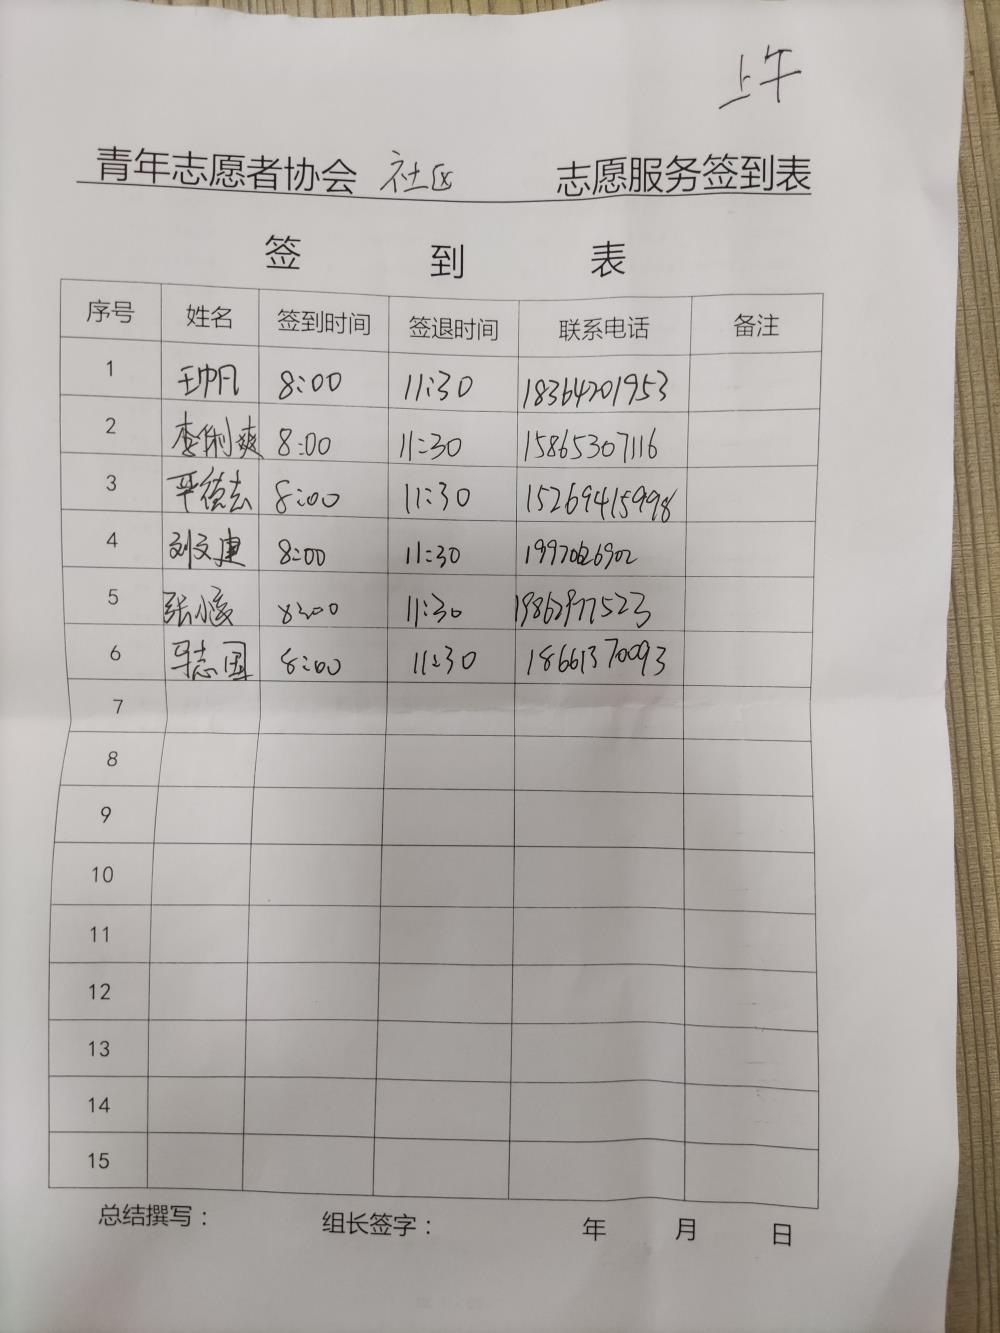 上午
青年志愿者协会 社区 志愿服务签到表
签 到 表
序号 姓名 签到时间 签退时间 联系电话 备注
1 王帅凡 8:00 11:30 18364201953
2 李俐爽 8:00 11:30 15865307116
3 8:00 11:30 15269415998
4 刘文建 8:00 11:30
5 8:00 11:30 19862977523
6 马志国 8:00 11:30 18661370093
7
8
9
10
11
12
13
14
15
总结撰写： 组长签字： 年 月 日